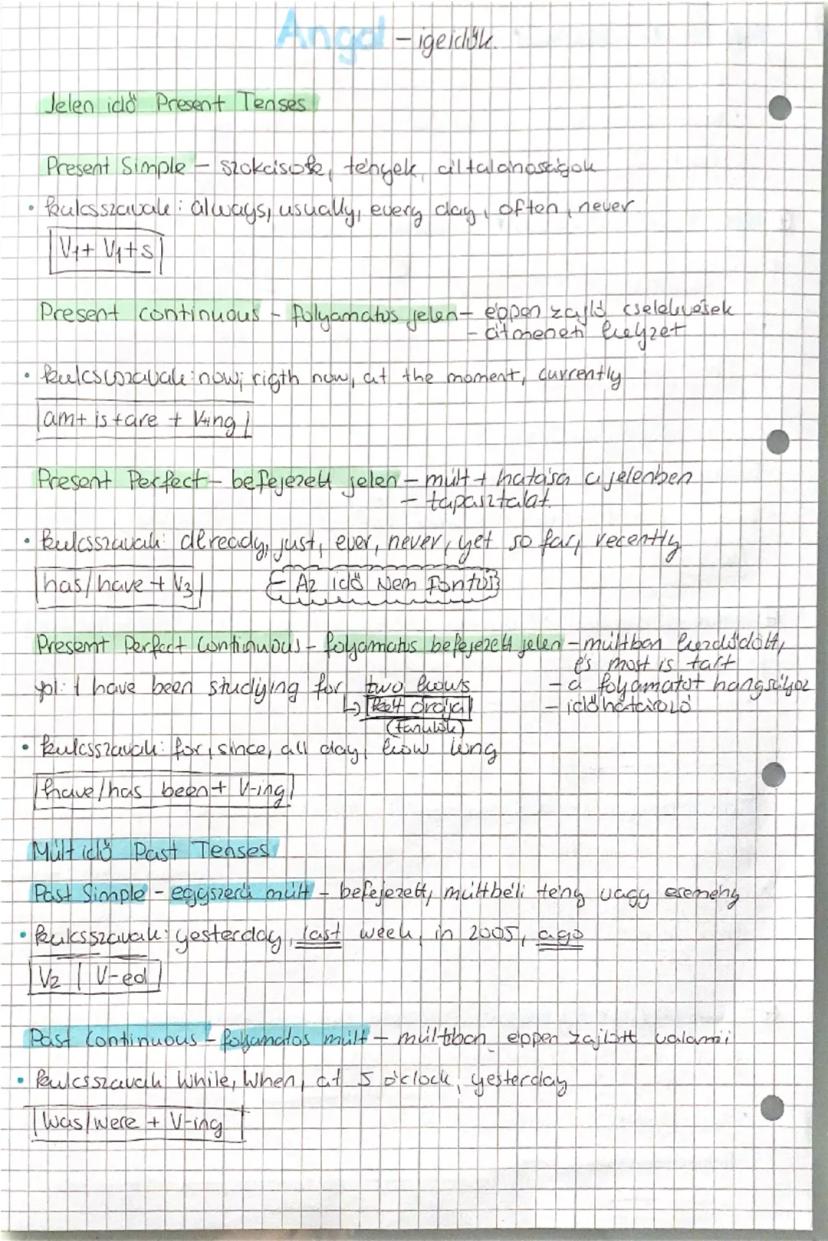 Angol - igeidők.
Jelen idő Present Tenses
Present Simple - szokások, tények, általánosságok
• kulcsszavak: always, usually, every day, often, never
V1+ V1+s
Present continuous - folyamatos jelen - éppen zajló cselekvések
- átmeneti helyzet
• kulcsszavak: now, rigth now, at the moment, currently
am+ is +are + V+ing
Present Perfect - befejezett jelen - múlt + hatása a jelenben
- tapasztalat.
• kulcsszavak: already, just, ever, never, yet so far, recently
has/have + V3
- Az idő Nem Fontos
Present Perfect Continuous - folyamatos befejezett jelen - múltban kezdődött,
és most is tart
pl: I have been studying for two hours
- a folyamatot hangsúlyoz
↳ két órája
- időhatároló
(tanulok)
• kulcsszavak: for, since, all day, how long
have/has been + V-ing
Múlt idő Past Tenses
Past Simple - eggszerű múlt - befejezett, múltbéli tény vagy esemény
• kulcsszavak: yesterday, last week, in 2005, ago
V2 | V-ed
Past Continuous - folyamatos múlt - múltban éppen zajlott valami
• kulcsszavak: While, When, at 5 o'clock, yesterday
Was/were + V-ing